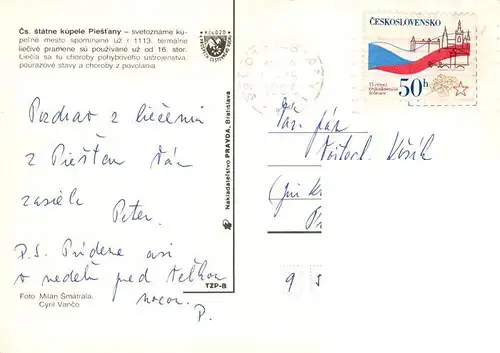 Čs. štátne kúpele Piešťany – svetoznáme kú-
peľné mesto spomínané už r. 1113. termálne
liečivé pramene sú používané už od 16. stor.
Liečia sa tu choroby pohybového ústrojenstva
poúrazové stavy a choroby z povolania
Pozdrav z liečenia
z Piešťan Vám
zasiela
Peter.
P.S. Prídeme asi
v nedeľu pred
nocou.
P.
Foto Milan Šmátrala,
Cyril Vančo
Nakladateľstvo PRAVDA, Bratislava
TZP-8
ČESKOSLOVENSKO
15. výročí
československé
federace
50h
Váž. pán
Vojtech
9 5